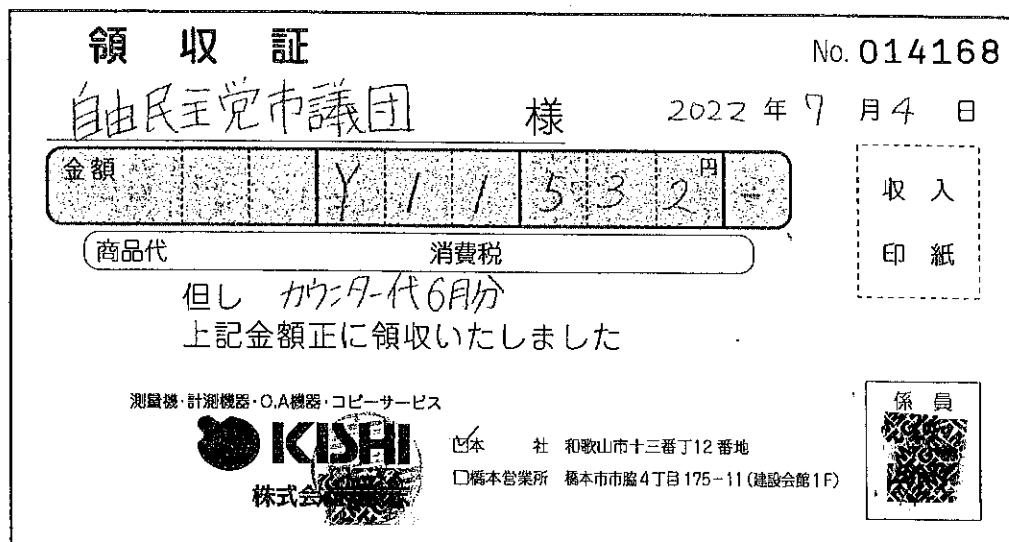 領収証
No. 014168
自由民主党市議団 様
2022年7月4日
金額 ¥11532円-
商品代 消費税
収入
印紙
但し カウンター代6月分
上記金額正に領収いたしました
測量機・計測機器・O,A機器・コピーサービス
KISHI
株式会
☑本 社 和歌山市十三番丁12番地
□橋本営業所 橋本市市脇4丁目175-11(建設会館1F)
係員